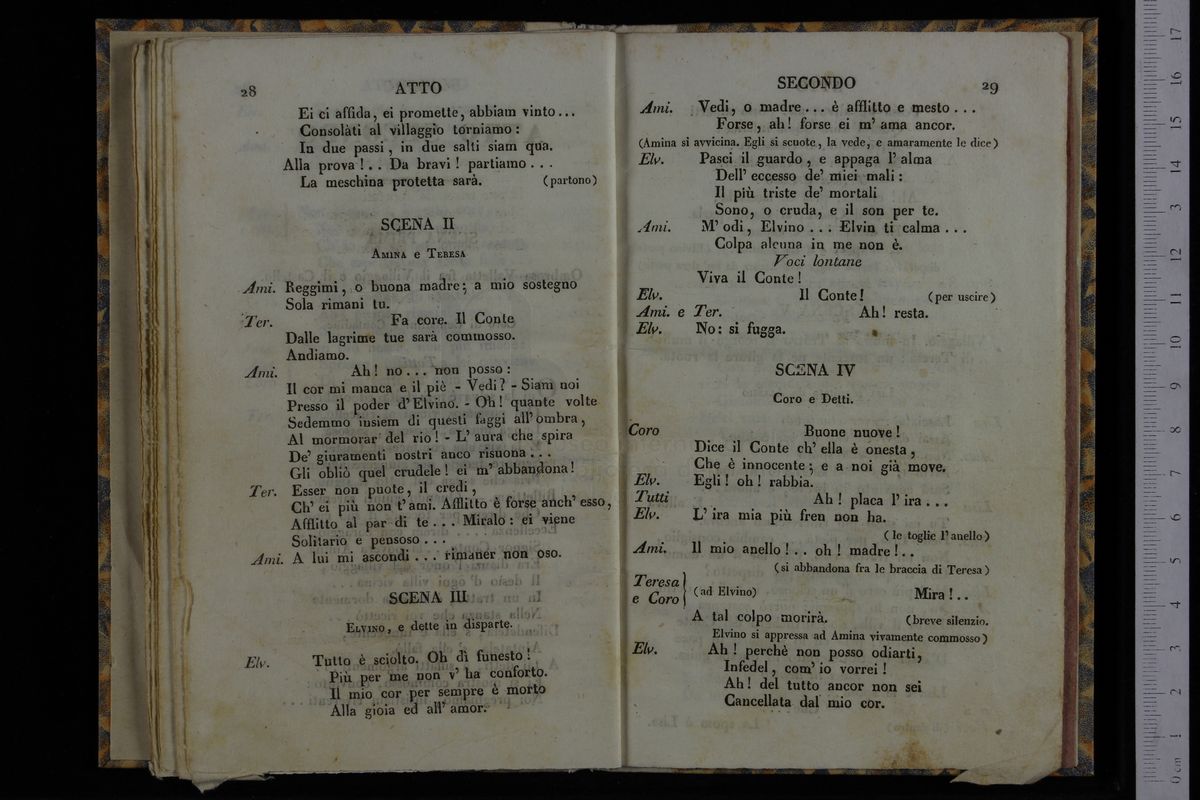 28 ATTO
Ei ci affida, ei promette, abbiam vinto...
Consolàti al villaggio torniamo:
In due passi, in due salti siam qua.
Alla prova!.. Da bravi! partiamo...
La meschina protetta sarà. (partono)
SCENA II
AMINA e TERESA
Ami. Reggimi, o buona madre; a mio sostegno
Sola rimani tu.
Ter. Fa core. Il Conte
Dalle lagrime tue sarà commosso.
Andiamo.
Ami. Ah! no... non posso:
Il cor mi manca e il piè - Vedi? - Siam noi
Presso il poder d' Elvino. - Oh! quante volte
Sedemmo insiem di questi faggi all' ombra,
Al mormorar del rio! - L' aura che spira
De' giuramenti nostri anco risuona...
Gli obliò quel crudele! ei m' abbandona!
Ter. Esser non puote, il credi,
Ch' ei più non t' ami. Afflitto è forse anch' esso,
Afflitto al par di te... Miralo: ei viene
Solitario e pensoso...
Ami. A lui mi ascondi... rimaner non oso.
SCENA III
ELVINO, e dette in disparte.
Elv. Tutto è sciolto. Oh dì funesto!
Più per me non v' ha conforto.
Il mio cor per sempre è morto
Alla gioia ed all' amor.
SECONDO 29
Ami. Vedi, o madre... è afflitto e mesto...
Forse, ah! forse ei m' ama ancor.
(Amina si avvicina. Egli si scuote, la vede, e amaramente le dice)
Elv. Pasci il guardo, e appaga l' alma
Dell' eccesso de' miei mali:
Il più triste de' mortali
Sono, o cruda, e il son per te.
Ami. M' odi, Elvino... Elvin ti calma...
Colpa alcuna in me non è.
Voci lontane
Viva il Conte!
Elv. Il Conte! (per uscire)
Ami. e Ter. Ah! resta.
Elv. No: si fugga.
SCENA IV
Coro e Detti.
Coro Buone nuove!
Dice il Conte ch' ella è onesta,
Che è innocente; e a noi già move.
Elv. Egli! oh! rabbia.
Tutti Ah! placa l' ira...
Elv. L' ira mia più fren non ha.
(le toglie l' anello)
Ami. Il mio anello!.. oh! madre!..
(si abbandona fra le braccia di Teresa)
Teresa e Coro (ad Elvino) Mira!..
A tal colpo morirà. (breve silenzio.
Elvino si appressa ad Amina vivamente commosso)
Elv. Ah! perchè non posso odiarti,
Infedel, com' io vorrei!
Ah! del tutto ancor non sei
Cancellata dal mio cor.
0 cm 1 2 3 4 5 6 7 8 9 10 11 12 13 14 15 16 17